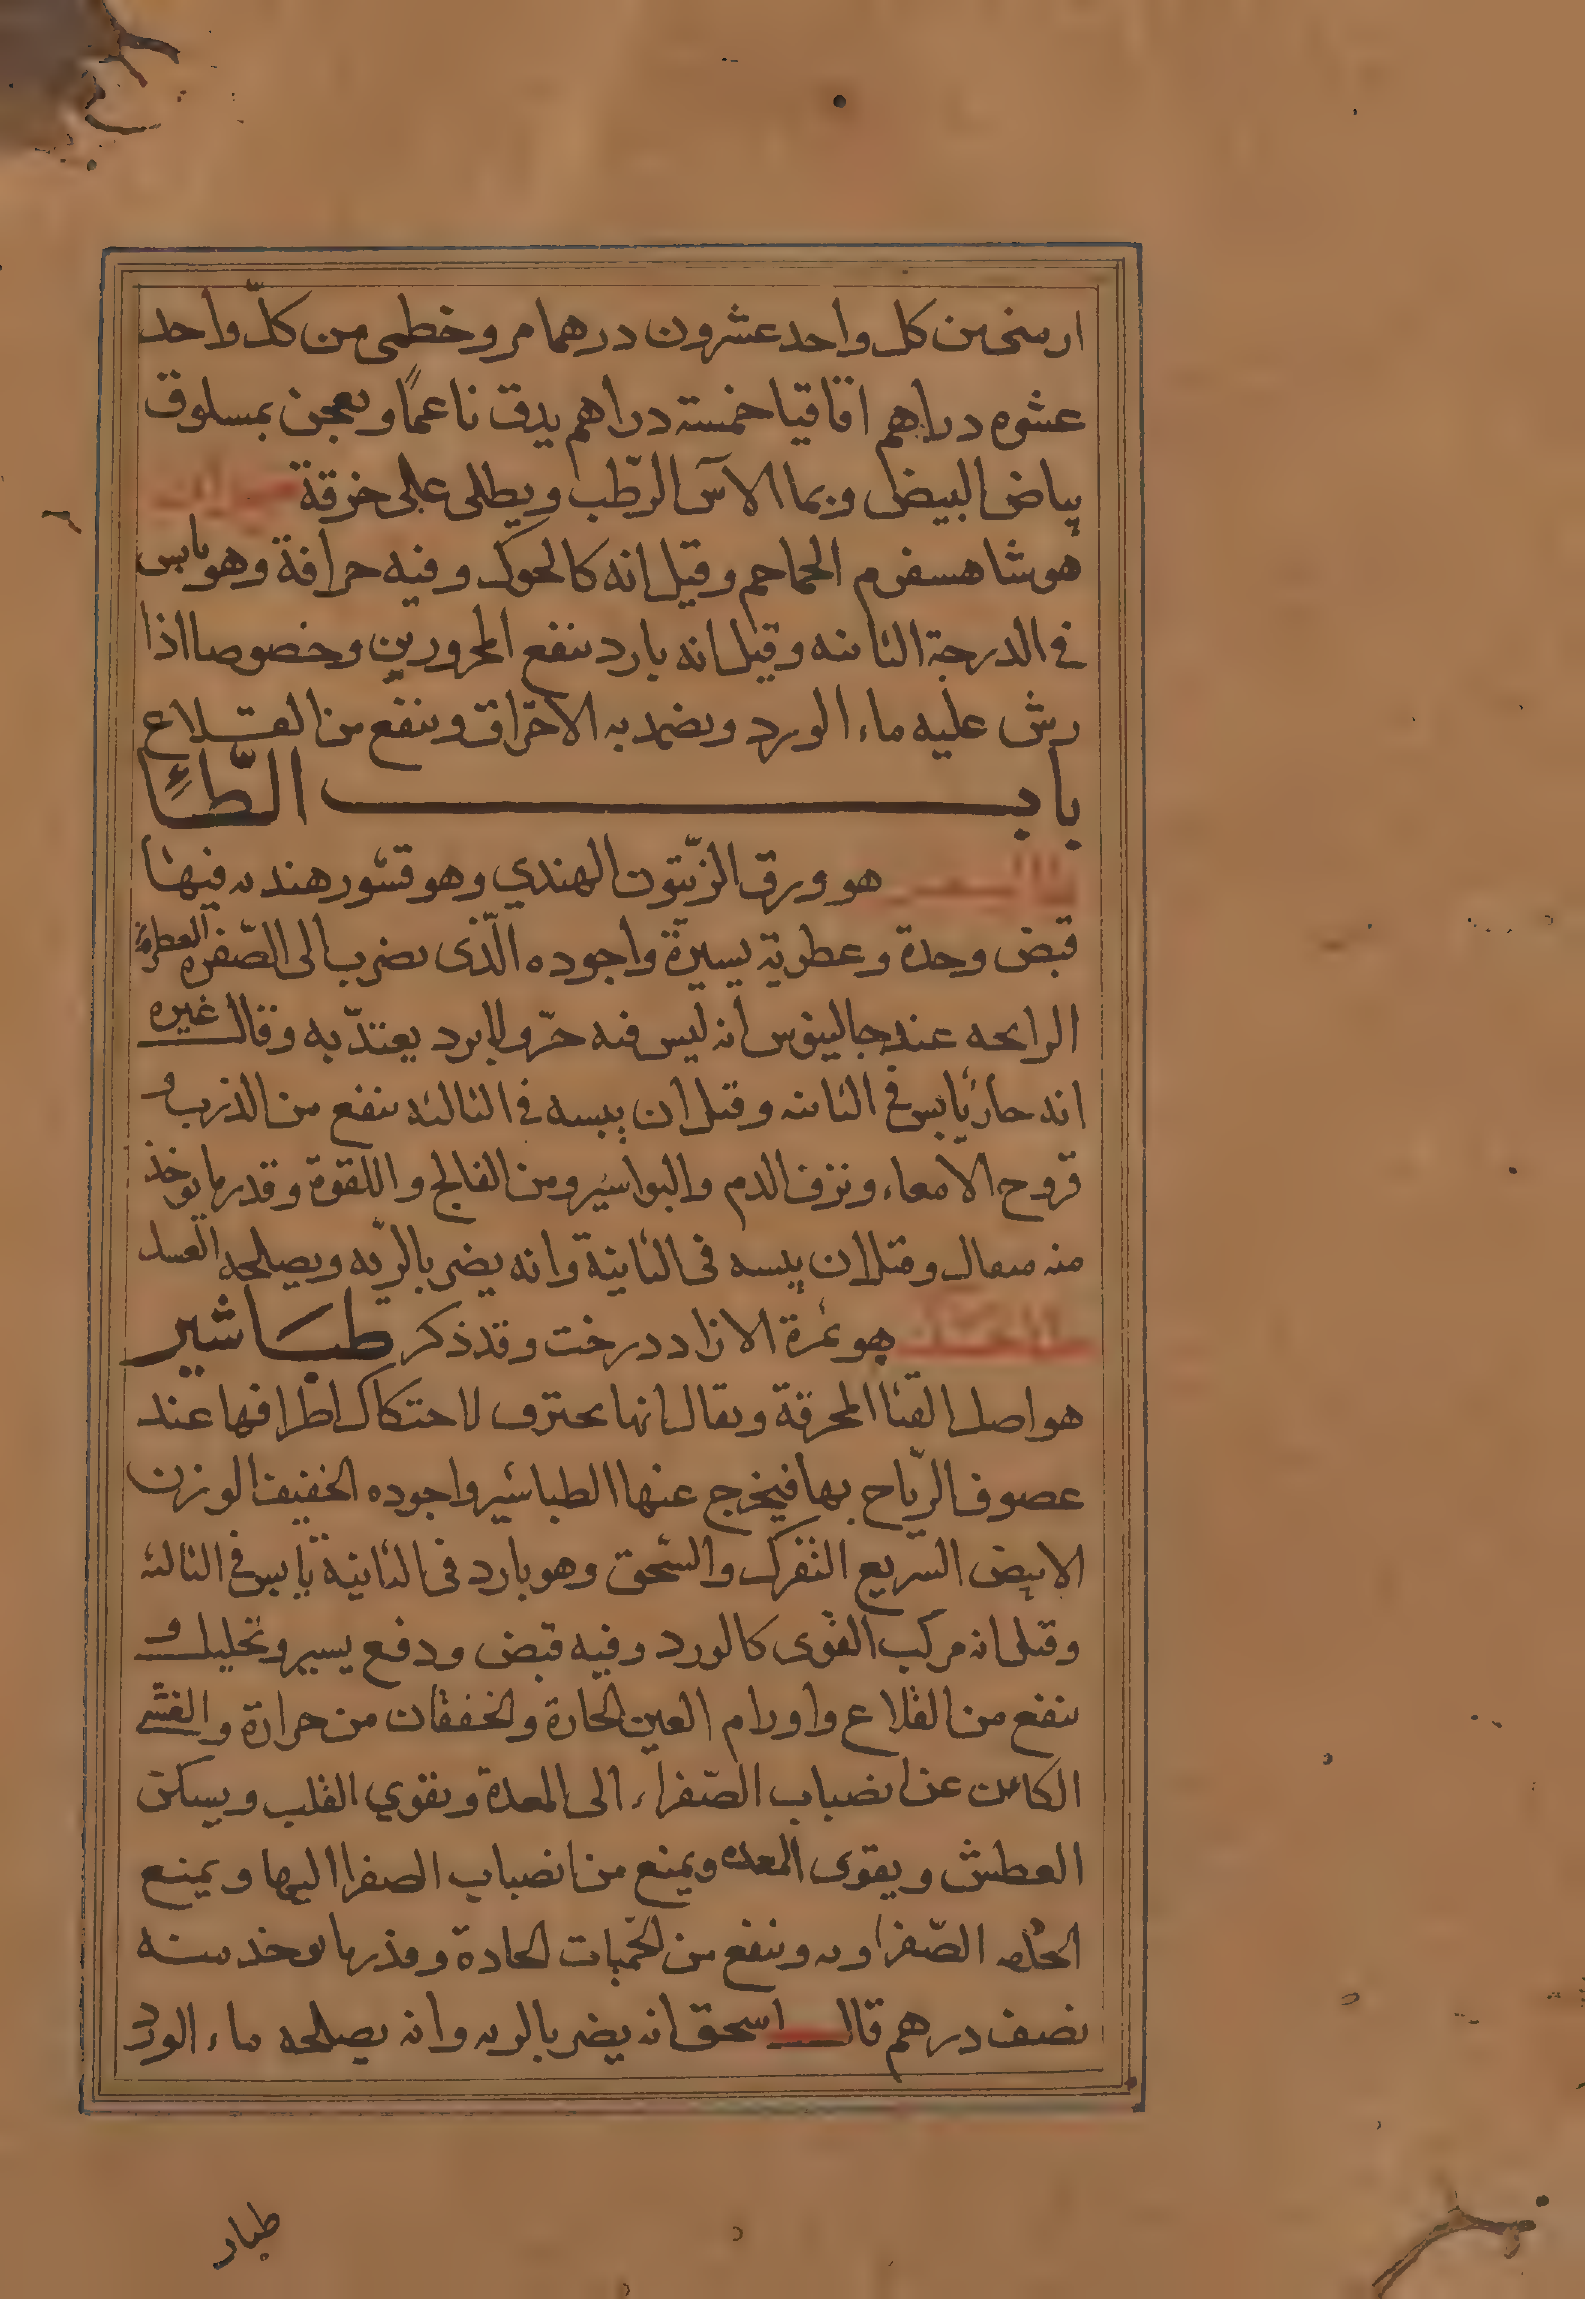 ارمنى من كل واحد عشرون درهما مر وخطمى من كلّ واحد
عشره دراهم اقاقيا خمسة دراهم يدق ناعمًا ويعجن بمسلوق
بياض البيض وبما الآس الرّطب ويطلى على خرقة
هو شاهسفرم الحماحم وقيل انه كالحوك وفيه حرافة وهو يابس
فى الدرجة الثانيه وقيل انه بارد ينفع المحرورين وخصوصا اذا
رش عليه ماء الورد ويضمد به الاحتراق وينفع من القلاع
باب الطّاءِ
هو ورق الزّيتون الهندي وهو قشور هنديه فيها
قبض وحدة وعطرية يسيرة واجوده الّذى يضرب الى الصّفره العطرية
الرايحه عند جالينوس انه ليس فيه حرّ ولا برد يعتدّ به وقال غيره
انه حارّ يابس فى الثانيه وقيل ان يبسه فى الثالثه ينفع من الذرب و
قروح الامعاء ونزف الدم والبواسير ومن الفالج واللقوة وقدر ما يوخذ
منه مثقال وقيل ان يبسه فى الثانية وانه يضر بالرّيه ويصلحه العسل
هو ثمرة الازاددرخت وقد ذكر طباشير
هو اصل القنا المحرقة ويقال انها تحترق لاحتكاك اطرافها عند
عصوف الرّياح بها فيخرج عنها الطباشير واجوده الخفيف الوزن
الابيض السّريع التفرك والسّحق وهو بارد فى الثانية يابس فى الثالثه
وقيل انه مركب القوى كالورد وفيه قبض ودفع يسير وتحليل و
ينفع من القلاع واورام العين الحارة والخفقان من حرارة والغشى
الكائن عن انصباب الصّفراء الى المعدة ويقوي القلب ويسكن
العطش ويقوى المعده ويمنع من انصباب الصفرا اليها ويمنع
الصّفراويه وينفع من الحمّيات الحادة وقدر ما يوخذ منه
نصف درهم قال اسحق انه يضر بالريه وانه يصلحه ماء الورد
طبار